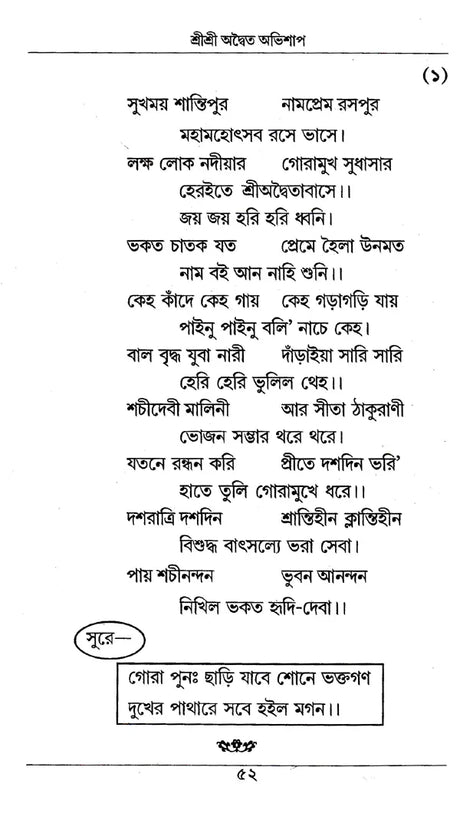 শ্রীশ্রী অদ্বৈত অভিশাপ
(১)
সুখময় শান্তিপুর নামপ্রেম রসপুর
মহামহোৎসব রসে ভাসে।
লক্ষ লোক নদীয়ার গোরামুখ সুধাসার
হেরইতে শ্রীঅদ্বৈতাবাসে।।
জয় জয় হরি হরি ধ্বনি।
ভকত চাতক যত প্রেমে হৈলা উনমত
নাম বই আন নাহি শুনি।।
কেহ কাঁদে কেহ গায় কেহ গড়াগড়ি যায়
পাইনু পাইনু বলি’ নাচে কেহ।
বাল বৃদ্ধ যুবা নারী দাঁড়াইয়া সারি সারি
হেরি হেরি ভুলিল থেহ।।
শচীদেবী মালিনী আর সীতা ঠাকুরাণী
ভোজন সম্ভার থরে থরে।
যতনে রন্ধন করি প্রীতে দশদিন ভরি’
হাতে তুলি গোরামুখে ধরে।।
দশরাত্রি দশদিন শ্রান্তিহীন ক্লান্তিহীন
বিশুদ্ধ বাৎসল্যে ভরা সেবা।
পায় শচীনন্দন ভুবন আনন্দন
নিখিল ভকত হৃদি-দেবা।।
সুরে—
গোরা পুনঃ ছাড়ি যাবে শোনে ভক্তগণ
দুখের পাথারে সবে হইল মগন।।
৫২